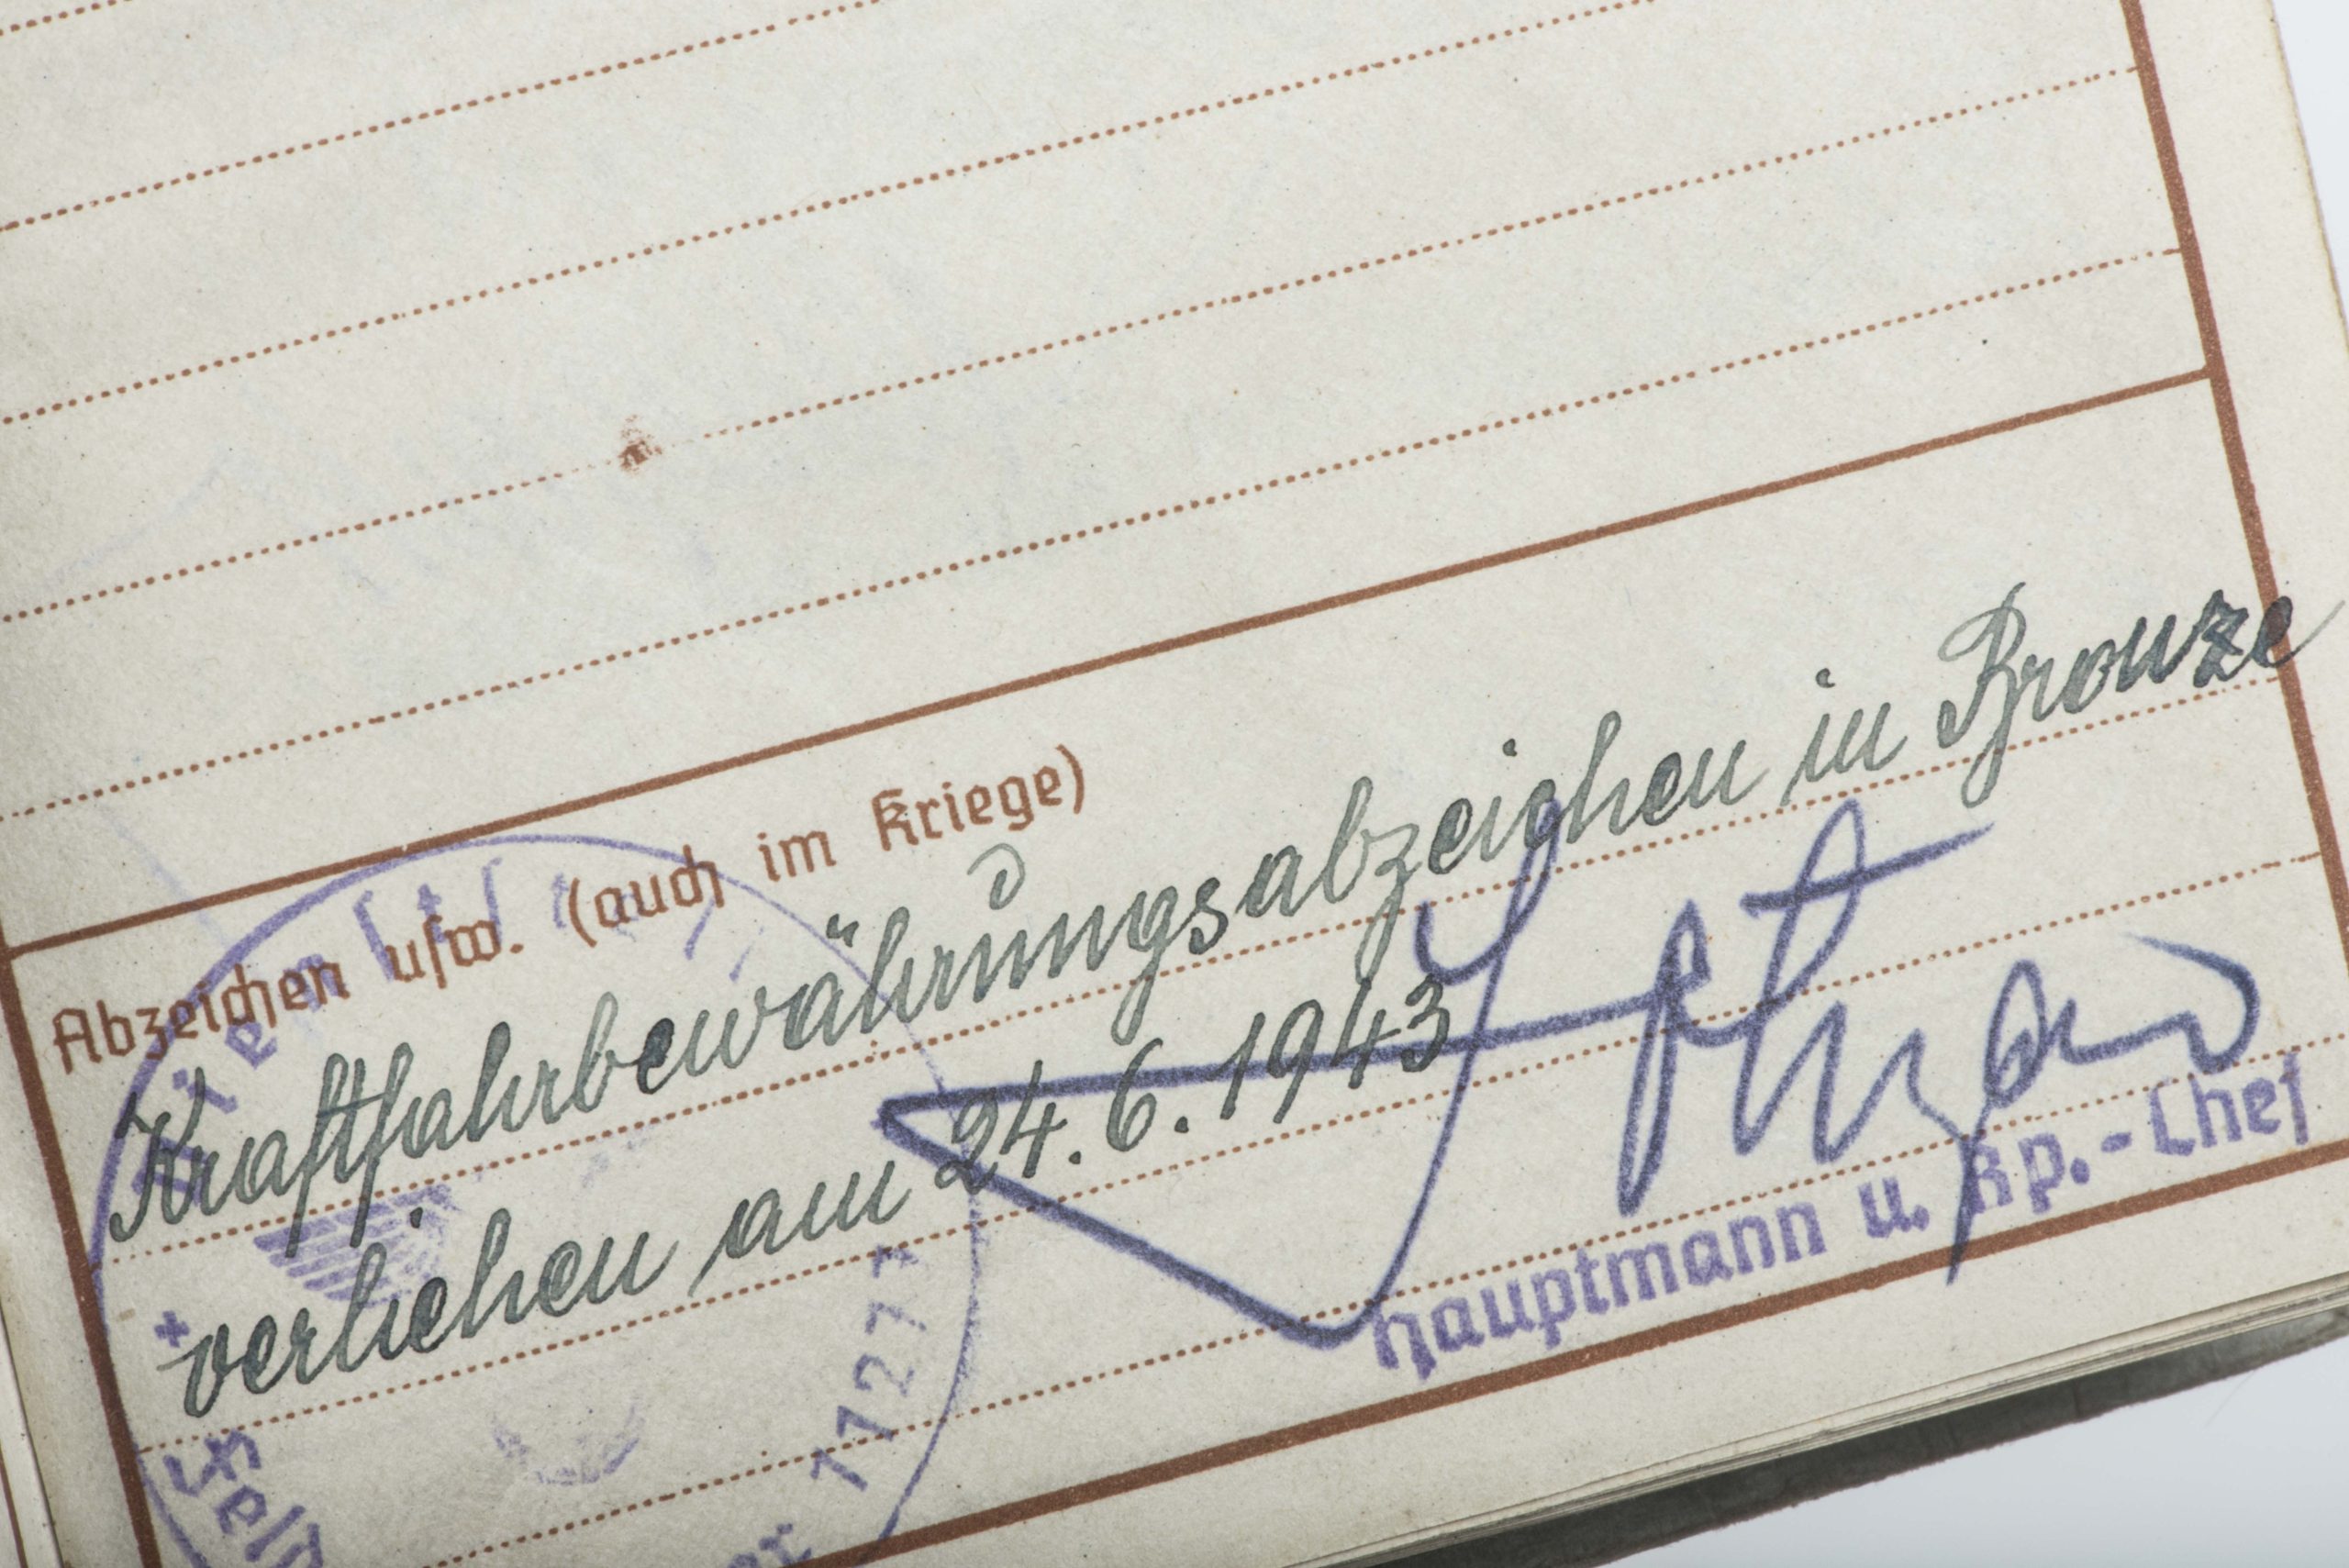 Abzeichen usw. (auch im Kriege)
Kraftfahrbewährungsabzeichen in Bronze
verliehen am 24.6.1943
Hauptmann u. Kp.-Chef
Dienst
11277